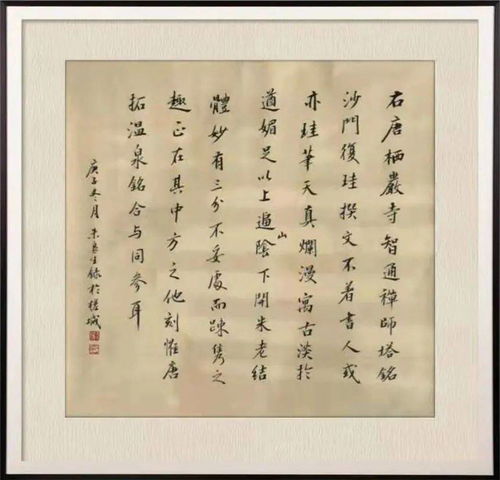 右唐栖嚴寺智通禅師塔銘
沙門復珪撰文不着書人或
亦珪華天真爛漫寓古淡於
遒媚足以上追陰下開米老结
山
體妙有三分不妥處而踈雋之
趣正在其中方之他刻惟唐
拓温泉銘合与同參耳
庚子冬月朱良生録於槎城